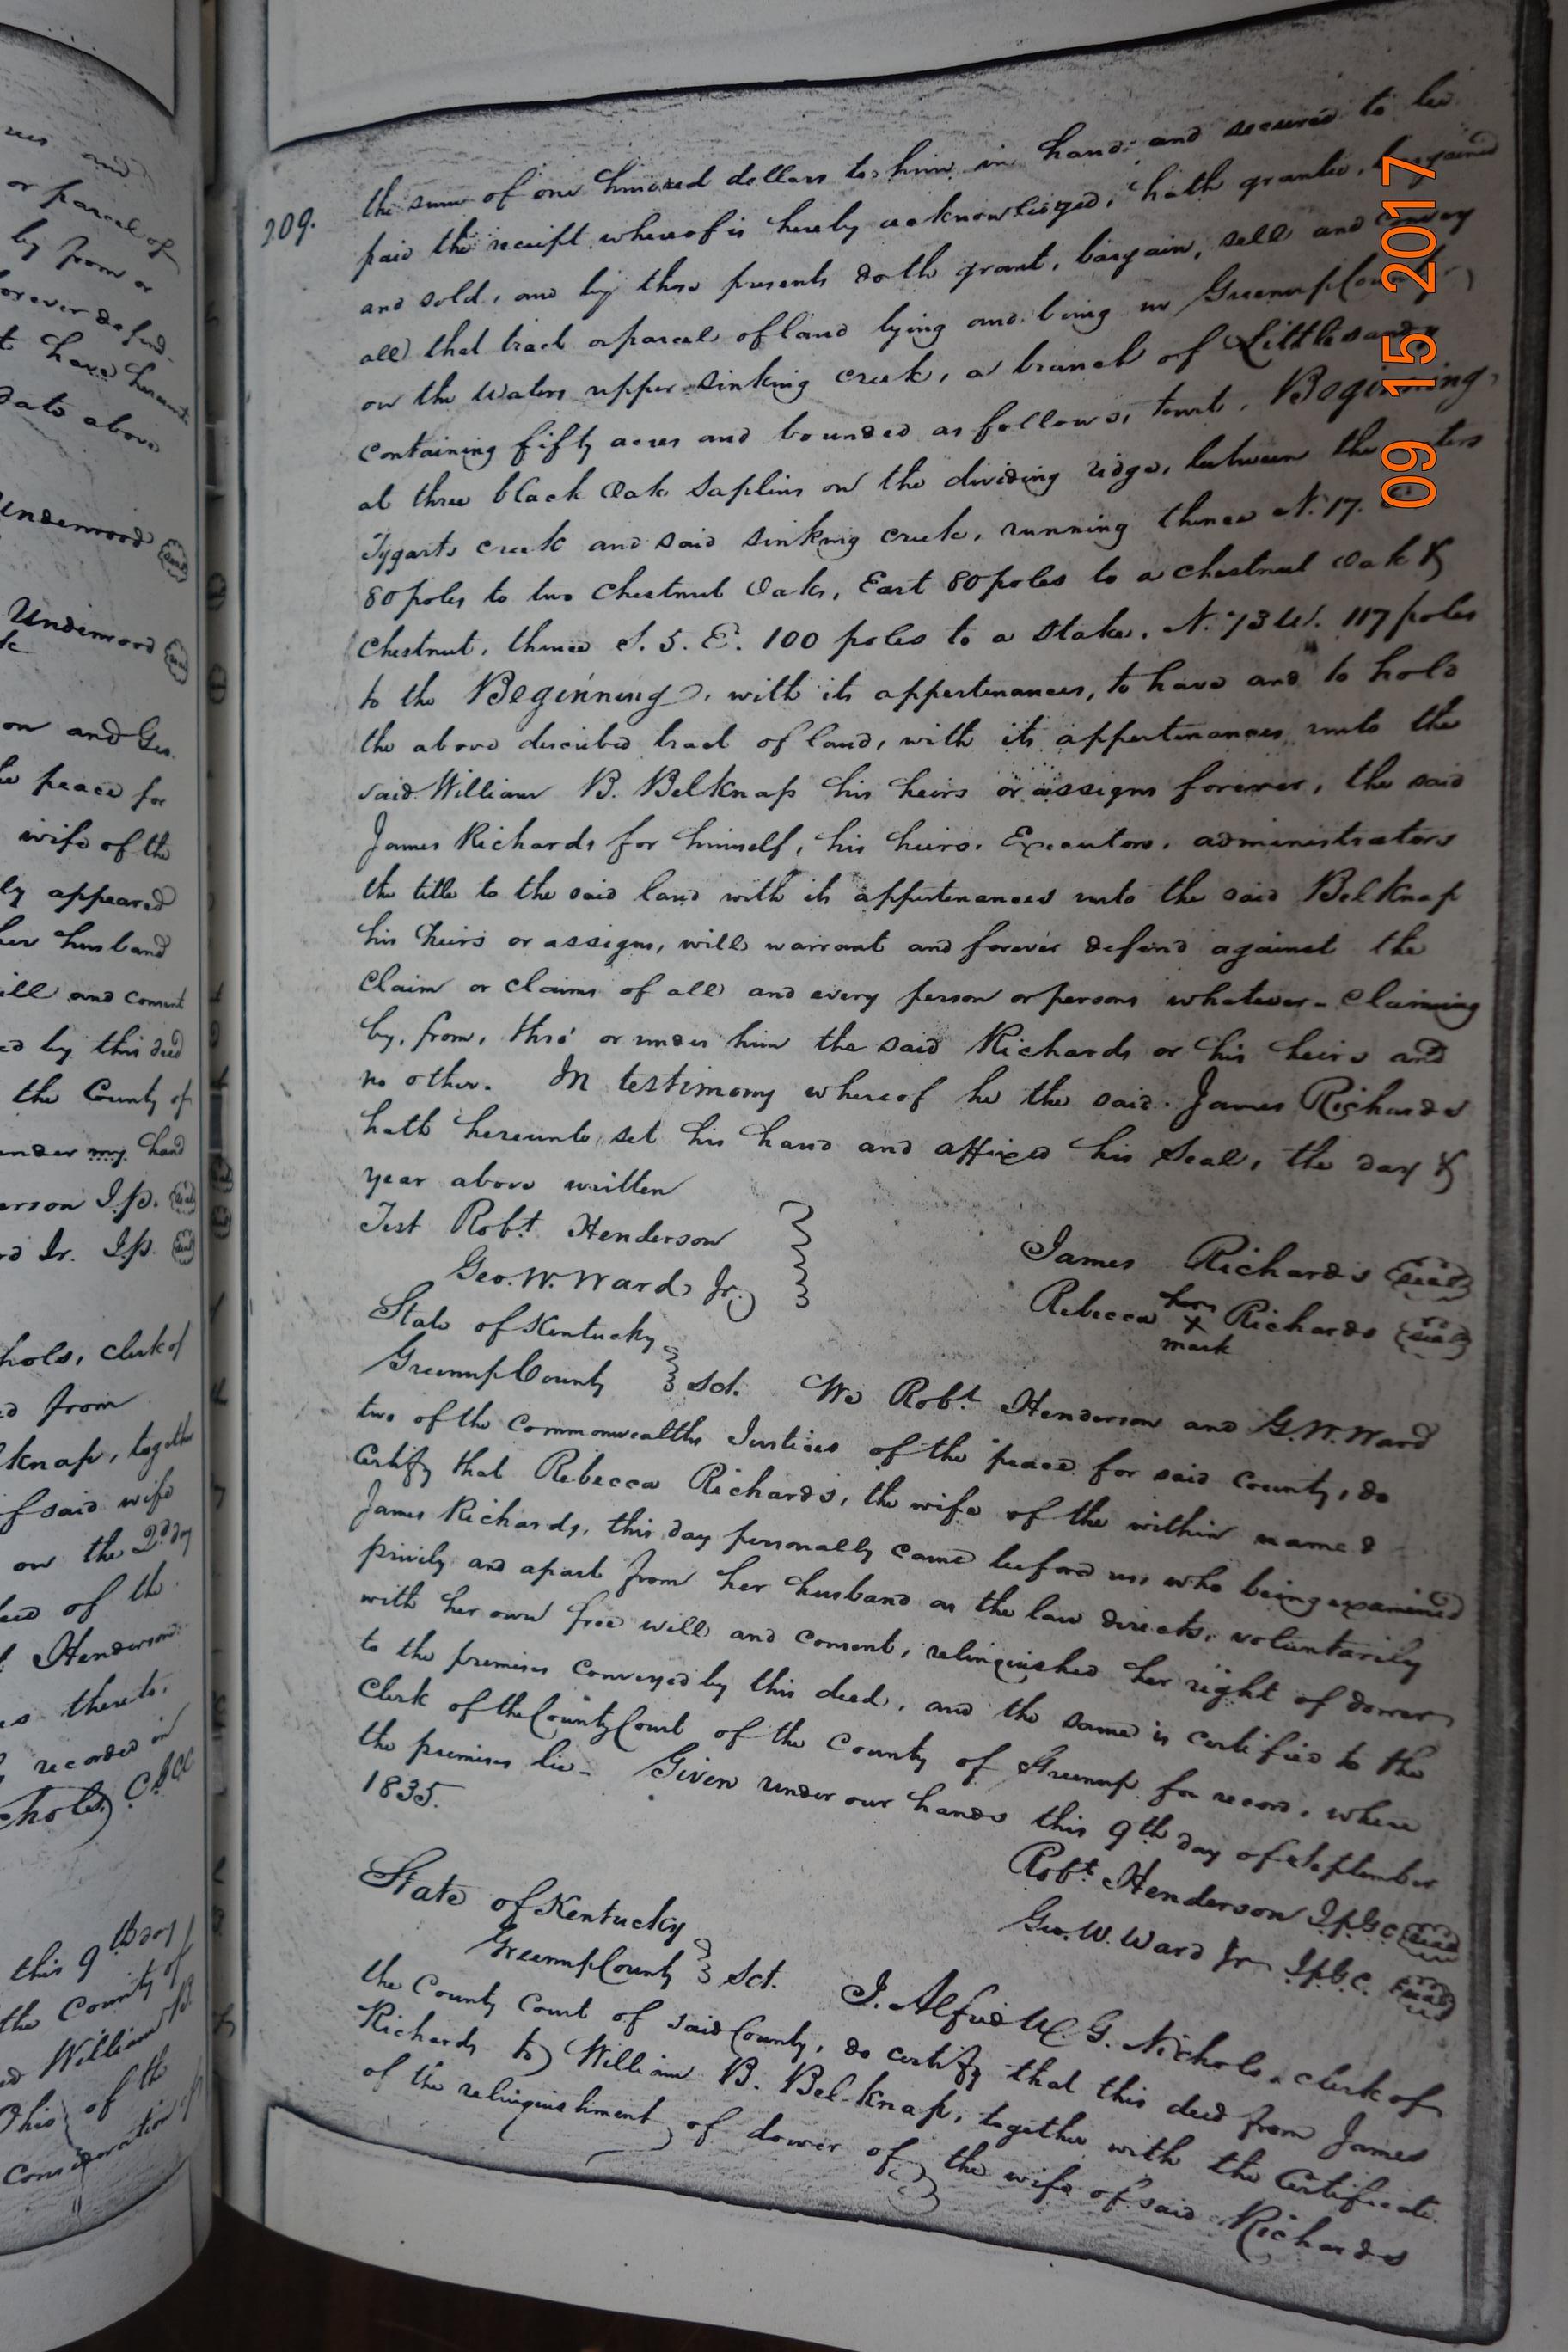 209.
the sum of one hundred dollars to him in hand and secured to be
paid the receipt whereof is hereby acknowledged, hath granted, bargained
and sold, and by these presents doth grant, bargain, sell and convey
all that tract or parcel of land lying and being in Greenup County
on the Waters upper sinking creek, a branch of Little sandy
containing fifty acres and bounded as follows, towit, Beginning,
at three black Oak Saplins on the dividing ridge, between the
Tygarts creek and said sinking creek, running thence N. 17.
80 poles to two Chestnut Oaks, East 80 poles to a chestnut Oak &
Chestnut, thence S. 5. E. 100 poles to a Stake, N. 73 W. 117 poles
to the Beginning, with its appertenances, to have and to hold
the above described tract of land, with its appertenances unto the
said William B. Belknap his heirs or assigns forever, the said
James Richards for himself, his heirs, Executors, administrators
the title to the said land with its appertenances unto the said Belknap
his heirs or assigns, will warrant and forever defend against the
claim or claims of all and every person or persons whatever - claiming
by, from, thro' or under him the said Richards or his heirs and
no other. In testimony whereof he the said James Richards
hath hereunto set his hand and affixed his Seal, the day &
year above written
Test Robt Henderson
Geo. W. Ward Jr.
James Richards seal
Rebecca her X mark Richards seal
State of Kentucky
Greenup County Sct. We Robt Henderson and G. W. Ward
two of the Commonwealths Justices of the peace for said County, do
Certify that Rebecca Richards, the wife of the within named
James Richards, this day personally came before us who being examined
privily and apart from her husband as the law directs, voluntarily
with her own free will and consent, relinquished her right of dower
to the premises conveyed by this deed, and the same is certified to the
Clerk of the County Court of the County of Greenup for record, where
the premises lie - Given under our hands this 9th day of September
1835.
Robt Henderson J.P.G.C. seal
Geo. W. Ward Jr J.P.G.C. seal
State of Kentucky
Greenup County Sct. I. Alfred G. Nichols, clerk of
the County Court of said County, do certify that this deed from James
Richards to William B. Bel-knap, together with the Certificate
of the relinquishment of dower of the wife of said Richards
09 15 2017
and
or parcel of
by from or
forever defend
have hereunto
date above
Underwood seal
Underwood seal
on and Geo.
peace for
wife of the
ly appeared
her husband
ill and consent
ed by this deed
the County of
under my hand
erson J.P. seal
rd Jr. J.P. seal
hols, clerk of
ed from
knap, together
f said wife
on the 2d day
deed of the
Henderson
thereto,
recorded in
this 9th day
the County of
William B.
Ohio of the
Consideration of